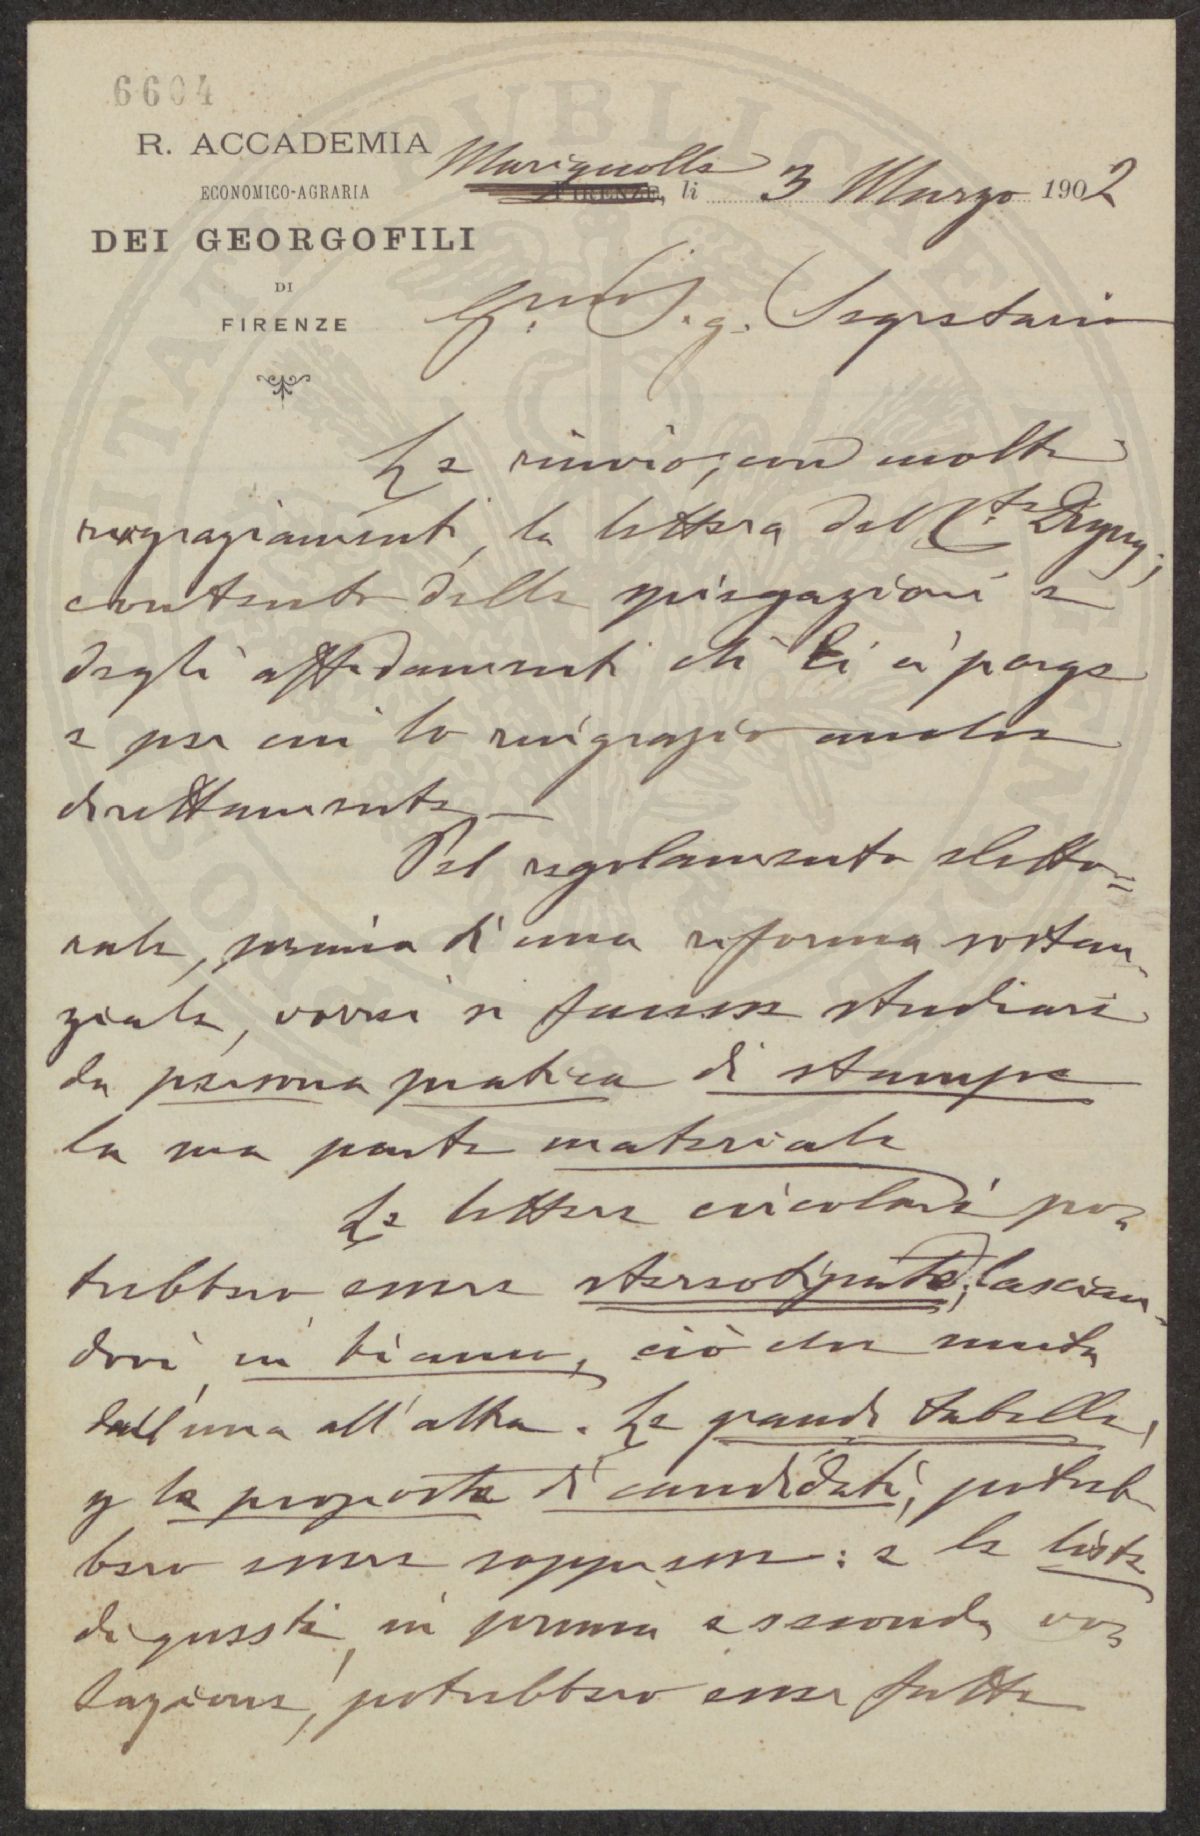 6604
R. ACCADEMIA
ECONOMICO-AGRARIA
DEI GEORGOFILI
DI
FIRENZE
Marignolle
FIRENZE, li 3 Marzo 1902
Sig. Segretario
Le rinvio, con molti
ringraziamenti, la lettera del C.te Digny;
contento delle spiegazioni e
degli affidamenti che Ei ci porge
e per cui lo ringrazio anche
direttamente —
Pel regolamento eletto=
rale, prima di una riforma sostan-
ziale, vorrei si facesse studiare
da persona pratica di stampe
la sua parte materiale
Le lettere circolari po-
trebbero essere stereotipate, lascian-
dovi in bianco, ciò che muta
dall'una all'altra. Le grandi tabelle,
p le proposte di candidati, potreb
bero essere soppresse: e le liste
di questi, in prima e seconda vo-
tazione, potrebbero esser fatte